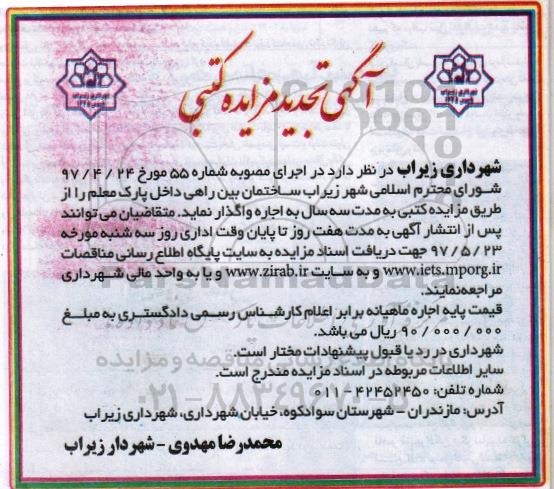 آگهی تجدید مزایده کتبی
شهرداری زیراب در نظر دارد در اجرای مصوبه شماره ۵۵ مورخ ۹۷/۴/۲۴
شورای محترم اسلامی شهر زیراب ساختمان بین راهی داخل پارک معلم را از
طریق مزایده کتبی به مدت سه سال به اجاره واگذار نماید. متقاضیان می توانند
پس از انتشار آگهی به مدت هفت روز تا پایان وقت اداری روز سه شنبه مورخه
۹۷/۵/۲۳ جهت دریافت اسناد مزایده به سایت پایگاه اطلاع رسانی مناقصات
www.iets.mporg.ir و به سایت www.zirab.ir و یا به واحد مالی شهرداری
مراجعه نمایند.
قیمت پایه اجاره ماهیانه برابر اعلام کارشناس رسمی دادگستری به مبلغ
۹۰/۰۰۰/۰۰۰ ریال می باشد.
شهرداری در رد یا قبول پیشنهادات مختار است.
سایر اطلاعات مربوطه در اسناد مزایده مندرج است.
شماره تلفن: ۴۲۴۵۲۴۵۰-۰۱۱
آدرس: مازندران - شهرستان سوادکوه، خیابان شهرداری، شهرداری زیراب
محمدرضا مهدوی - شهردار زیراب
ParsNamadData
۰۲۱-۸۸۳۴۹۶۷۰-۵